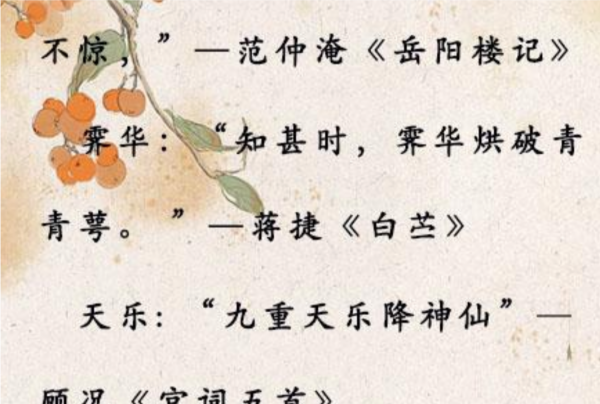 不惊，”—范仲淹《岳阳楼记》
霁华：“知甚时，霁华烘破青
青萼。”—蒋捷《白苎》
天乐：“九重天乐降神仙”—
顾况《宫词五首》